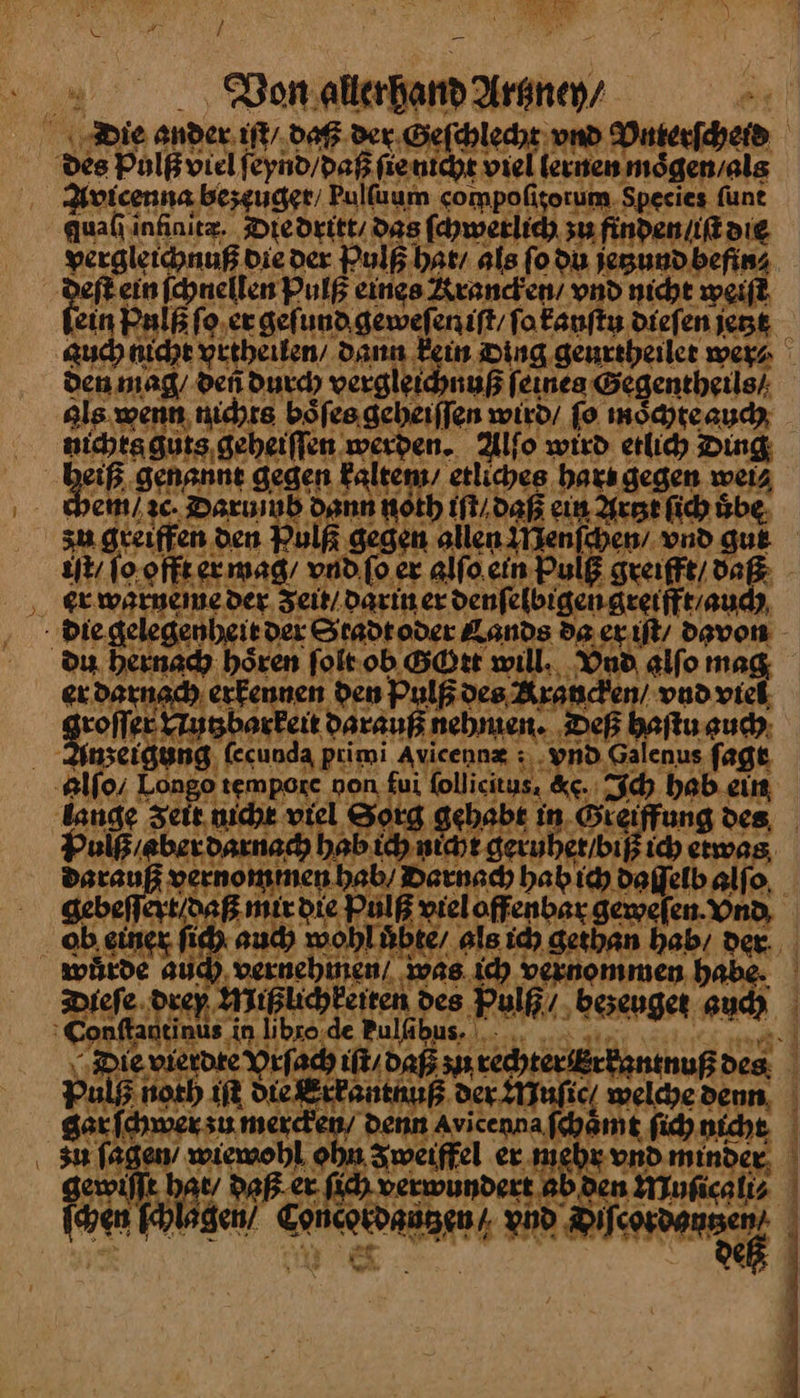 Von allerhand Artzney/
Die ander iſt/ daß der Geſchlecht vnd Vnterſcheid
des Pulß viel ſeynd/daß ſie nicht viel lernen moͤgen/als
Avicenna bezeuget/ Pulſuum compoſitorum Species ſunt
quaſi infinitæ. Die dritt/ das ſchwerlich zu finden/iſt die
vergleichnuß die der Pulß hat/ als ſo du jetzund befin⸗
deſt ein ſchnellen Pulß eines Krancken/ vnd nicht weiſt
ſein Pulß ſo er geſund geweſen iſt/ ſo kanſtu dieſen jetzt
auch nicht vrtheilen/ dann kein Ding geurtheilet wer⸗
den mag/ deñ durch vergleichnuß ſeines Gegentheils/
als wenn nichts boͤſes geheiſſen wird/ ſo moͤchte auch
nichts guts geheiſſen werden. Alſo wird etlich Ding
heiß genannt gegen kaltem/ etliches hart gegen wei⸗
chem/ ꝛc. Darumb dann noth iſt/ daß ein Artzt ſich uͤbe
zu greiffen den Pulß gegen allen Menſchen/ vnd gut
iſt/ ſo offt er mag/ vnd ſo er alſo ein Pulß greifft/ daß
er warneme der Zeit/ darin er denſelbigen greifft/auch
die gelegenheit der Stadt oder Lands da er iſt/ davon
du hernach hoͤren ſolt ob GOtt will. Vnd alſo mag
er darnach erkennen den Pulß des Krancken/ vnd viel
groſſer Nutzbarkeit darauß nehmen. Deß haſtu auch
Anzeigung ſecunda primi Avicennæ : vnd Galenus ſagt
alſo/ Longo tempore non fui ſollicitus, &c. Ich hab ein
lange Zeit nicht viel Sorg gehabt in Greiffung des
Pulß/aber darnach hab ich nicht geruhet/biß ich etwas
darauß vernommen hab/ Darnach hab ich daſſelb alſo
gebeſſert/daß mir die Pulß viel offenbar geweſen. Vnd
ob einer ſich auch wohl uͤbte/ als ich gethan hab/ der
wuͤrde auch vernehmen/ was ich vernommen habe.
Dieſe drey Mißlichkeiten des Pulß/ bezeuget auch
Conſtantinus in libro de Pulſibus.
Die vierdte Vrſach iſt/ daß zu rechter Erkantnuß des
Pulß noth iſt die Erkantnuß der Muſic/ welche denn
gar ſchwer zu mercken/ denn Avicenna ſchaͤmt ſich nicht
zu ſagen/ wiewohl ohn Zweiffel er mehr vnd minder
gewiſſt hat/ daß er ſich verwundert ab den Muſicali⸗
ſchen ſchlagen/ Concordantzen/ vnd Diſcordantzen/
deß